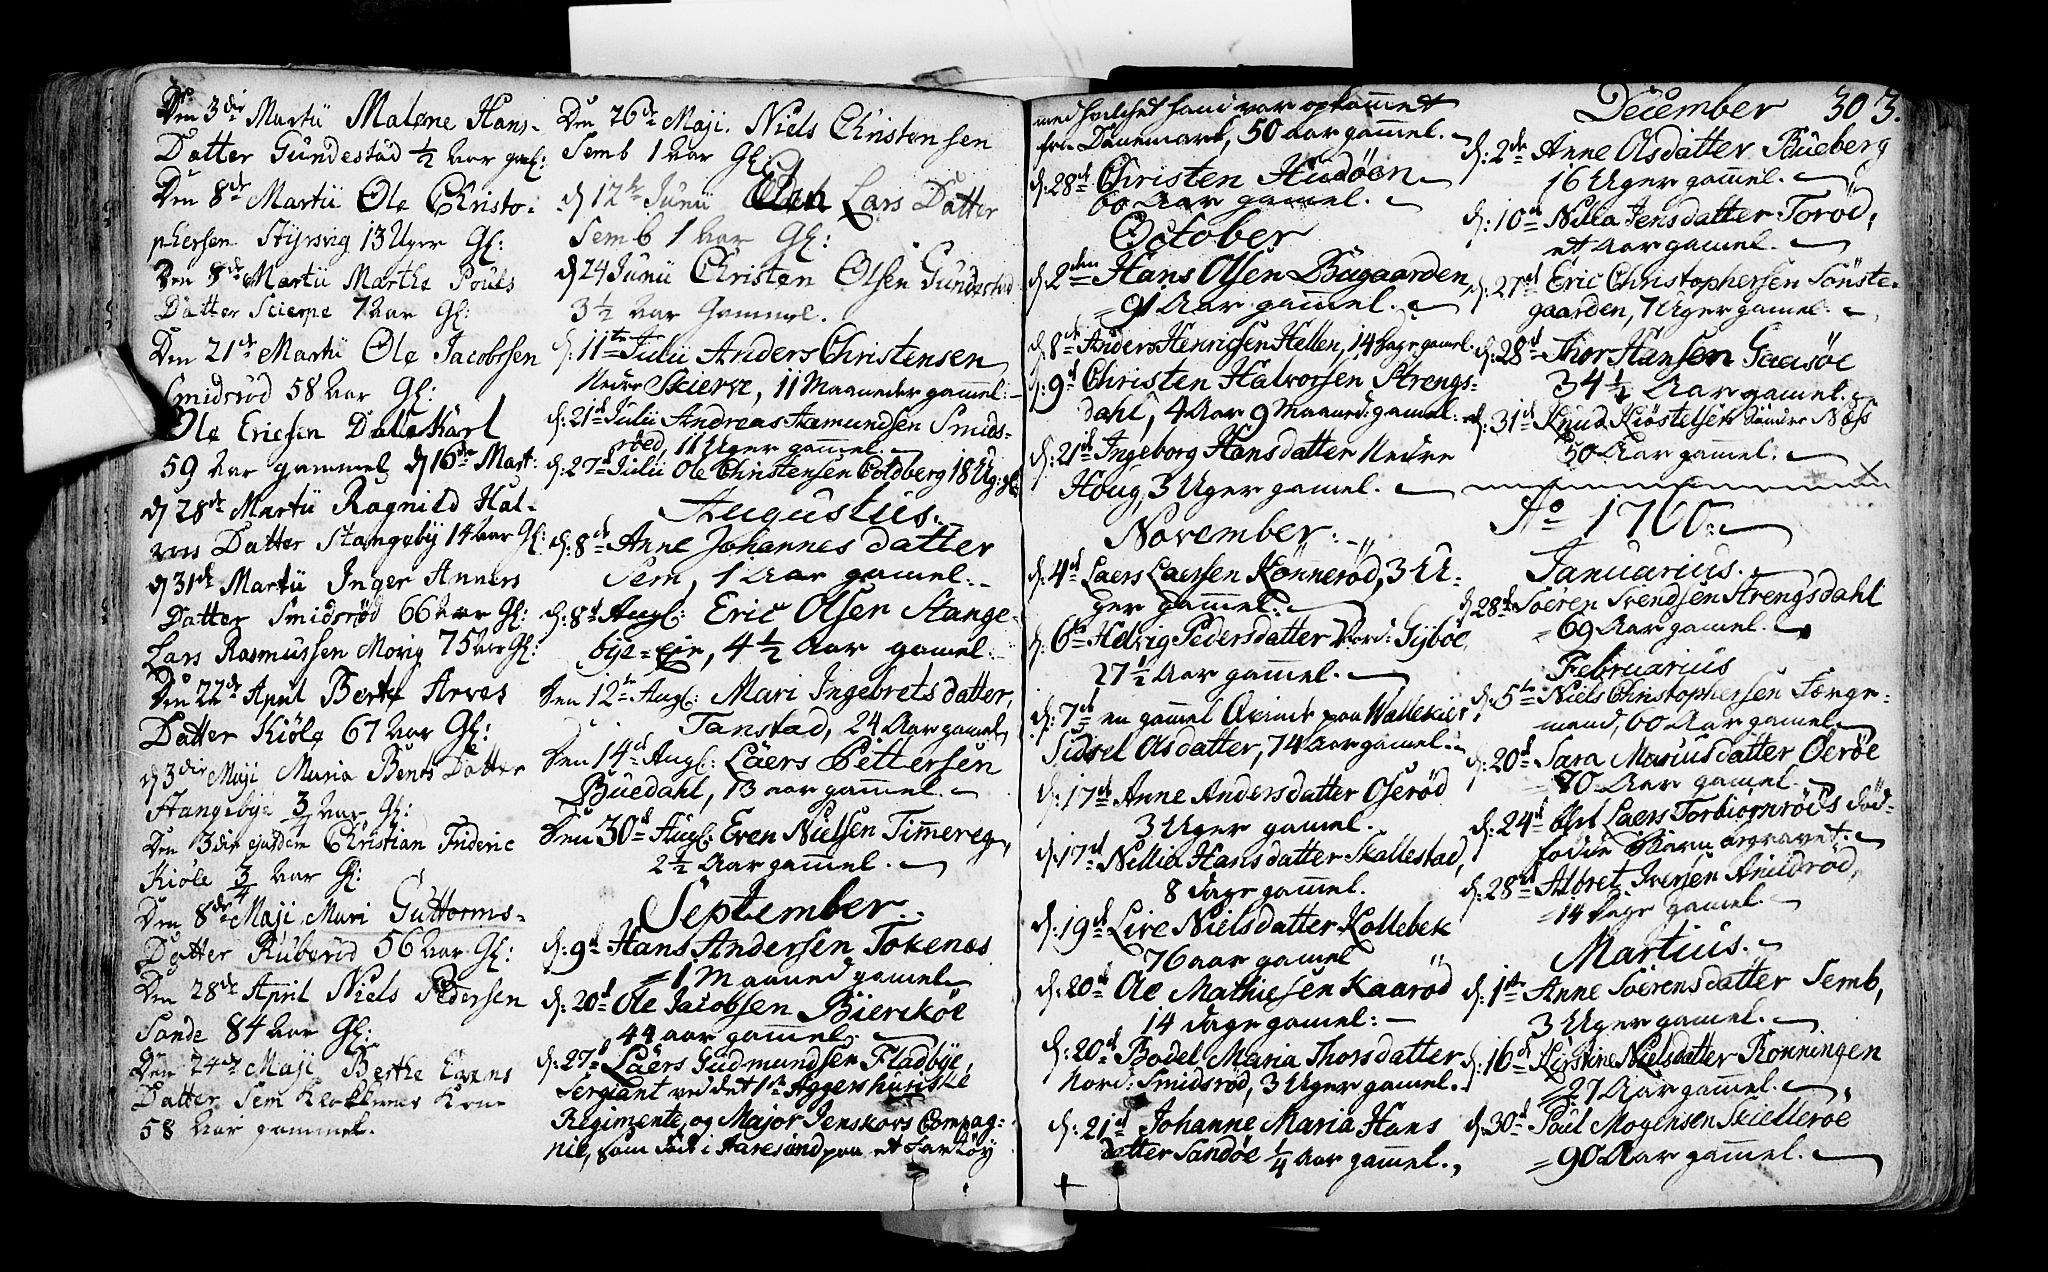 Den 3die Martii Malene Hans-
Datter Gundestad ½ Aar gl:
Den 8de Martii Ole Christo-
phersen Styrsvig 13 Uger Gl:
Den 8de Martii Marthe Pouls
Datter Scierpe 7 Aar Gl:
Den 21de Martii Ole Jacobssen
Smidsrød 58 Aar Gl:
Ole Ericsen Dallekarl
59 Aar gammel d 16de Mart:
d 28de Martii Ragnild Hal-
vors Datter Stangeby 14 Aar Gl:
d 31de Martii Inger Anners
Datter Smidsrød 66 Aar Gl:
Lars Rasmussen Movig 75 Aar Gl:
Den 22de April Berte Arves
Datter Kiøle 67 Aar Gl:
d 3die Maji Maria Bents Datter
Stangebye ¾ Aar Gl:
Den 3die ejusdem Christian Frideric
Kiøle ¾ Aar Gl:
Den 8de Maji Mari Guttorms-
Datter Ruberød 56 Aar Gl:
Den 28de April Niels Pedersen
Sande 84 Aar Gl:
Den 24de Maji Berthe Evens
Datter Sem Klokkerens Kone
58 Aar gammel.
Den 26de Maji. Niels Christensen
Semb 1 Aar Gl:
d 12te Junii Lars Datter
Semb 1 Aar Gl:
d 24 Junii Christen Olsen Gundestad
3 ½ Aar Gammel.
d: 11te Julii Anders Christensen
Nedre Skierve, 11 Maaneder gammel:
d: 21de Julii Andreas Aamundsen Smids-
røed, 11 Uger gammel.
d: 27de Julii Ole Christensen Goldberg 18 Ug: gl:
Augustus.
d: 8de Anne Johannes datter
Sem, 1 Aar gamel.
d: 8de Augl: Eric Olsen Stange-
bye=eje, 4 ½ Aar gamel
Den 12te Augl: Mari Ingebrets datter,
Tanstad, 24 Aar gamel,
Den 14de Augl: Laers Pettersen
Buedahl, 13 aar gammel.
Den 30de Augl: Even Nielsen Timmereg,
2 ½ Aar gammel.
September.
d: 9de Hans Andersen Tokenes
1 Maaned gamel,
d: 20de Ole Jacobsen Bierckøe
44 aar gammel.
d: 27de Laers Gudmundsen Fladbye,
Sergiant ved det 1te Aggershusiske
Regimente, og Major Jenskovs Compag-
nie, som døde i Haresund paa et Fartøy
med hvilket hand var opkommet
fra Danemark, 50 aar gammel.
d: 28de Christen Hudøen
60 Aar gamel.
October
d: 2den Hans Olsen Bugaarden,
91 Aar gammel.
d: 8de Anders Henrichsen Hellen, 14 Dage gamel.
d: 9de Christen Halvorsen Strengs-
dahl, 4 Aar 9 Maaned: gamel.
d: 21de Ingeborg Hansdatter Nedre
Houg, 3 Uger gamel.
November.
d: 4de Laers Laersen Kønnerød, 3 U-
ger gammel.
d: 6te Helvig Pedersdatter Nord: Gijbøe,
27 ½ Aar gammel.
d: 7de en gammel Qvinde paa Wallekier
Sidsel Olsdatter, 74 Aar gamel.
d: 17de Anne Andersdatter Oserød
3 Uger gamel.
d: 17de Nellia Hansdatter Skallestad,
8 dage gammel.
d: 19de Live Nielsdatter Kollebek
76 aar gamel
d: 20de Ole Mathiesen Kaarød
14 dage gamel:
d: 20de Bodel Maria Thorsdatter
Nord: Smidsrød, 3 Uger gamel.
d: 21de Johanne Maria Hans
datter Sandøe ¼ Aar gammel.
December 303.
d: 2de Anne Olsdatter Bueberg
16 Uger gammel.
d: 10de Nillia Jensdatter Torød,
et Aar gamel.
d: 27de Eric Christophersen Sønste-
gaarden, 7 Uger gamel.
d: 28de Thor Hansen Gaasøe
34 ½ Aar gamel.
d: 31de Knud Kiøstelsen Søndre Næss
50 Aar gamel.
Ao 1760.
Januarius.
d 28de Søeren Svendsen Strengsdahl
69 Aar gamel.
Februarius
d: 5te Niels Christophersen Færge-
mand, 60 Aar gamel.
d: 20de Sara Mariusdatter Oerøe
70 Aar gamel
d: 24de blef Laers Torbiørnrøds død-
fødde Barn begravet.
d: 28de Albret Iversen Arildrød,
14 Dage gamel.
Martius.
d: 1ste Anne Soerensdatter Semb,
3 Uger gamel.
d: 16de Kirstine Nielsdatter Rønningen
27 Aar gammel.
d: 30de Poul Mogensen Skiellerøe
90 Aar gammel.